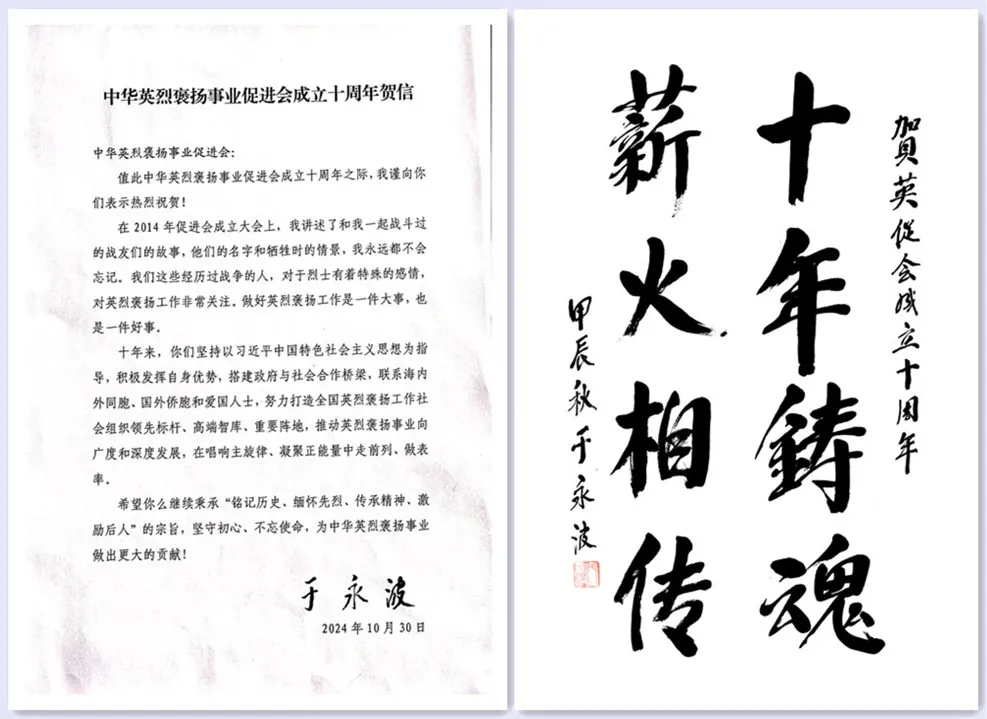 中华英烈褒扬事业促进会成立十周年贺信
中华英烈褒扬事业促进会：
值此中华英烈褒扬事业促进会成立十周年之际，我谨向你
们表示热烈祝贺！
在 2014 年促进会成立大会上，我讲述了和我一起战斗过
的战友们的故事，他们的名字和牺牲时的情景，我永远都不会
忘记。我们这些经历过战争的人，对于烈士有着特殊的感情，
对英烈褒扬工作非常关注。做好英烈褒扬工作是一件大事，也
是一件好事。
十年来，你们坚持以习近平中国特色社会主义思想为指
导，积极发挥自身优势，搭建政府与社会合作桥梁，联系海内
外同胞、国外侨胞和爱国人士，努力打造全国英烈褒扬工作社
会组织领先标杆、高端智库、重要阵地，推动英烈褒扬事业向
广度和深度发展，在唱响主旋律、凝聚正能量中走前列、做表
率。
希望你么继续秉承“铭记历史、缅怀先烈、传承精神、激
励后人”的宗旨，坚守初心、不忘使命，为中华英烈褒扬事业
做出更大的贡献！
于永波
2024 年 10 月 30 日
賀英促会成立十周年
十年鋳魂
薪火相传
甲辰秋于永波